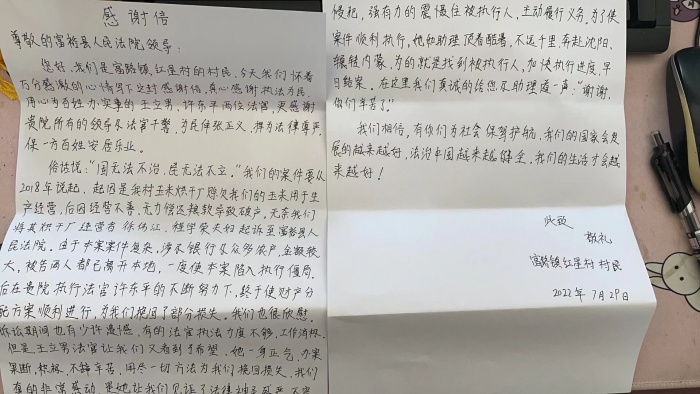 感谢信
尊敬的富裕县人民法院领导:
您好,我们是富路镇红星村的村民,今天我们怀着
万分感激的心情写下这封感谢信,衷心感谢执法为民、
用心为百姓办实事的王立男、许东平两位法官,更感谢
贵院所有的领导及法官干警,为民伸张正义,捍为法律尊严,
保一方百姓安居乐业。
俗话说:"国无法不治,民无法不立。"我们的案件要从
2018年说起,起因是我村玉米烘干厂赊欠我们的玉米用于生
产经营,后因经营不善,无力偿还粮款导致破产。无奈我们
将其烘干厂经营者徐伟江、程宇荣夫妇起诉至富裕县人
民法院。由于本案案件复杂,涉及银行及众多农户,金额较
大,被告两人都已离开本地,一度使本案陷入执行僵局,
后在贵院执行法官许东平的不断努力下,终于使财产分
配方案顺利进行,为我们挽回了部分损失。我们也很欣慰。
诉讼期间也有少许遗憾,有的法官执法力度不够,工作消极,
但是王立男法官让我们又看到了希望。她一身正气,办案
果断、积极、不辞辛苦,用尽一切方法为我们挽回损失,我们
真的非常感动,是她让我们见证了法律神圣威严,不容
侵犯,强有力的震慑住被执行人,主动履行义务,为了使
案件顺利执行,她和助理顶着酷暑,不远千里,奔赴沈阳、
辗转内蒙,为的就是找到被执行人,加快执行进度,早
日结案。在这里我们真诚的给您及助理道一声:"谢谢,
你们辛苦了。"
我们相信,有你们为社会保驾护航,我们的国家会发
展的越来越好,法治中国越来越健全,我们的生活才会越
来越好!
此致
敬礼
富路镇红星村村民
2022年7月29日